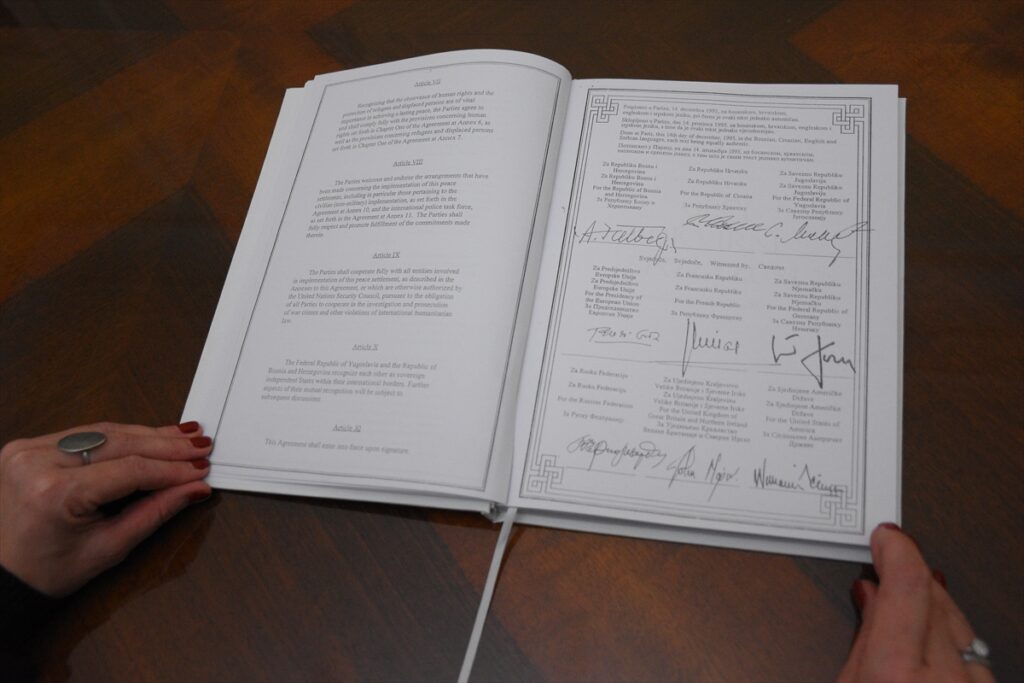 Article VII
Recognizing that the observance of human rights and the
protection of refugees and displaced persons are of vital
importance in achieving a lasting peace, the Parties agree to
and shall comply fully with the provisions concerning human
rights set forth in Chapter One of the Agreement at Annex 6, as
well as the provisions concerning refugees and displaced persons
set forth in Chapter One of the Agreement at Annex 7.
Article VIII
The Parties welcome and endorse the arrangements that have
been made concerning the implementation of this peace
settlement, including in particular those pertaining to the
civilian (non-military) implementation, as set forth in the
Agreement at Annex 10, and the international police task force,
as set forth in the Agreement at Annex 11. The Parties shall
fully respect and promote fulfillment of the commitments made
therein.
Article IX
The Parties shall cooperate fully with all entities involved
in implementation of this peace settlement, as described in the
Annexes to this Agreement, or which are otherwise authorized by
the United Nations Security Council, pursuant to the obligation
of all Parties to cooperate in the investigation and prosecution
of war crimes and other violations of international humanitarian
law.
Article X
The Federal Republic of Yugoslavia and the Republic of
Bosnia and Herzegovina recognize each other as sovereign
independent States within their international borders. Further
aspects of their mutual recognition will be subject to
subsequent discussions.
Article XI
This Agreement shall enter into force upon signature.
Potpisano u Parizu, 14. decembra 1995, na bosanskom, hrvatskom,
engleskom i srpskom jeziku, pri čemu je svaki tekst jednako autentičan.
Sklopljeno u Parizu, dne 14. prosinca 1995, na bosanskom, hrvatskom, engleskom i
srpskom jeziku, s time da je svaki tekst jednako vjerodostojan.
Done at Paris, this 14th day of December, 1995, in the Bosnian, Croatian, English and
Serbian languages, each text being equally authentic.
Za Republiku Bosnu i
Hercegovinu
Za Republiku Bosnu i
Hercegovinu
For the Republic of Bosnia
and Herzegovina
За Републику Босну и
Херцеговину
Za Republiku Hrvatsku
Za Republiku Hrvatsku
For the Republic of Croatia
За Републику Хрватску
Za Saveznu Republiku
Jugoslaviju
Za Saveznu Republiku
Jugoslaviju
For the Federal Republic of
Yugoslavia
За Савезну Републику
Југославију
Svjedoci, Svjedoče, Witnessed by, Сведоци
Za Predsjedništvo
Evropske Unije
Za Predsjedništvo
Europske Unije
For the Presidency of
the European Union
За Председништво
Европске Уније
Za Francusku Republiku
Za Francusku Republiku
For the French Republic
За Републику Француску
Za Saveznu Republiku
Njemačku
Za Saveznu Republiku
Njemačku
For the Federal Republic of
Germany
За Савезну Републику
Немачку
Za Rusku Federaciju
Za Rusku Federaciju
For the Russian Federation
За Руску Федерацију
Za Ujedinjeno Kraljevstvo
Velike Britanije i Sjeverne Irske
Za Ujedinjenu Kraljevinu
Velike Britanije i Sjeverne Irske
For the United Kingdom of
Great Britain and Northern Ireland
За Уједињено Краљевство
Велике Британије и Северне Ирске
John Major
Za Sjedinjene Američke
Države
Za Sjedinjene Američke
Države
For the United States of
America
За Сједињене Америчке
Државе